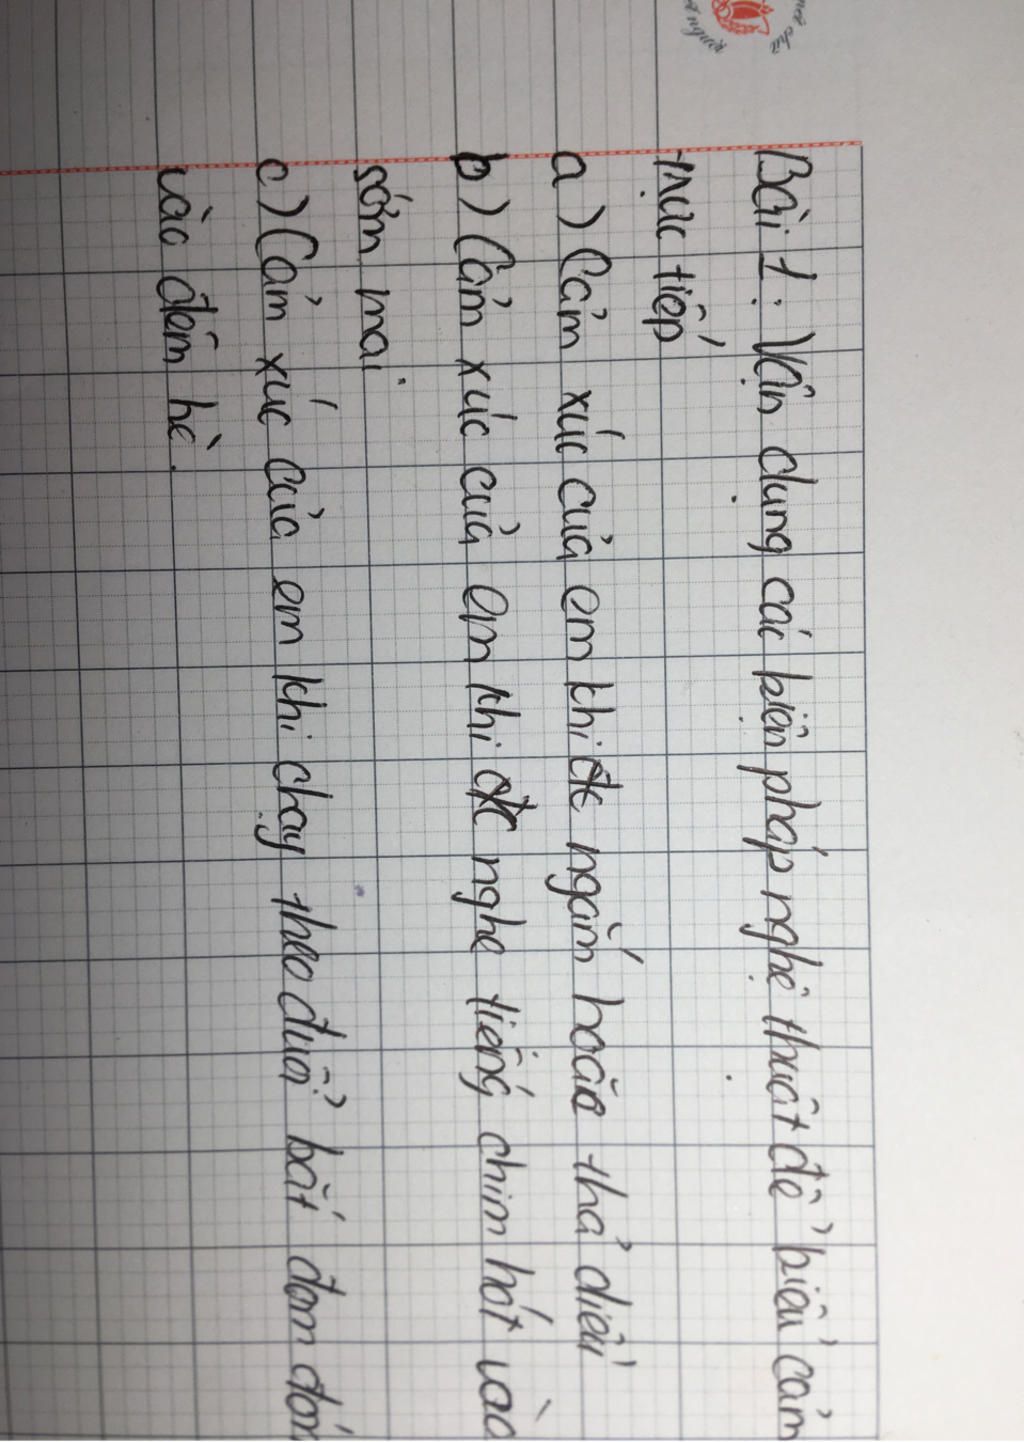 Bài 1: Vận dụng các biện pháp nghệ thuật để biểu cảm
trực tiếp
a) Cảm xúc của em khi đc ngắm hoặc thả diều
b) Cảm xúc của em khi đc nghe tiếng chim hót vào
sớm mai
c) Cảm xúc của em khi chạy theo đuổi bắt đom đóm
vào đêm hè.